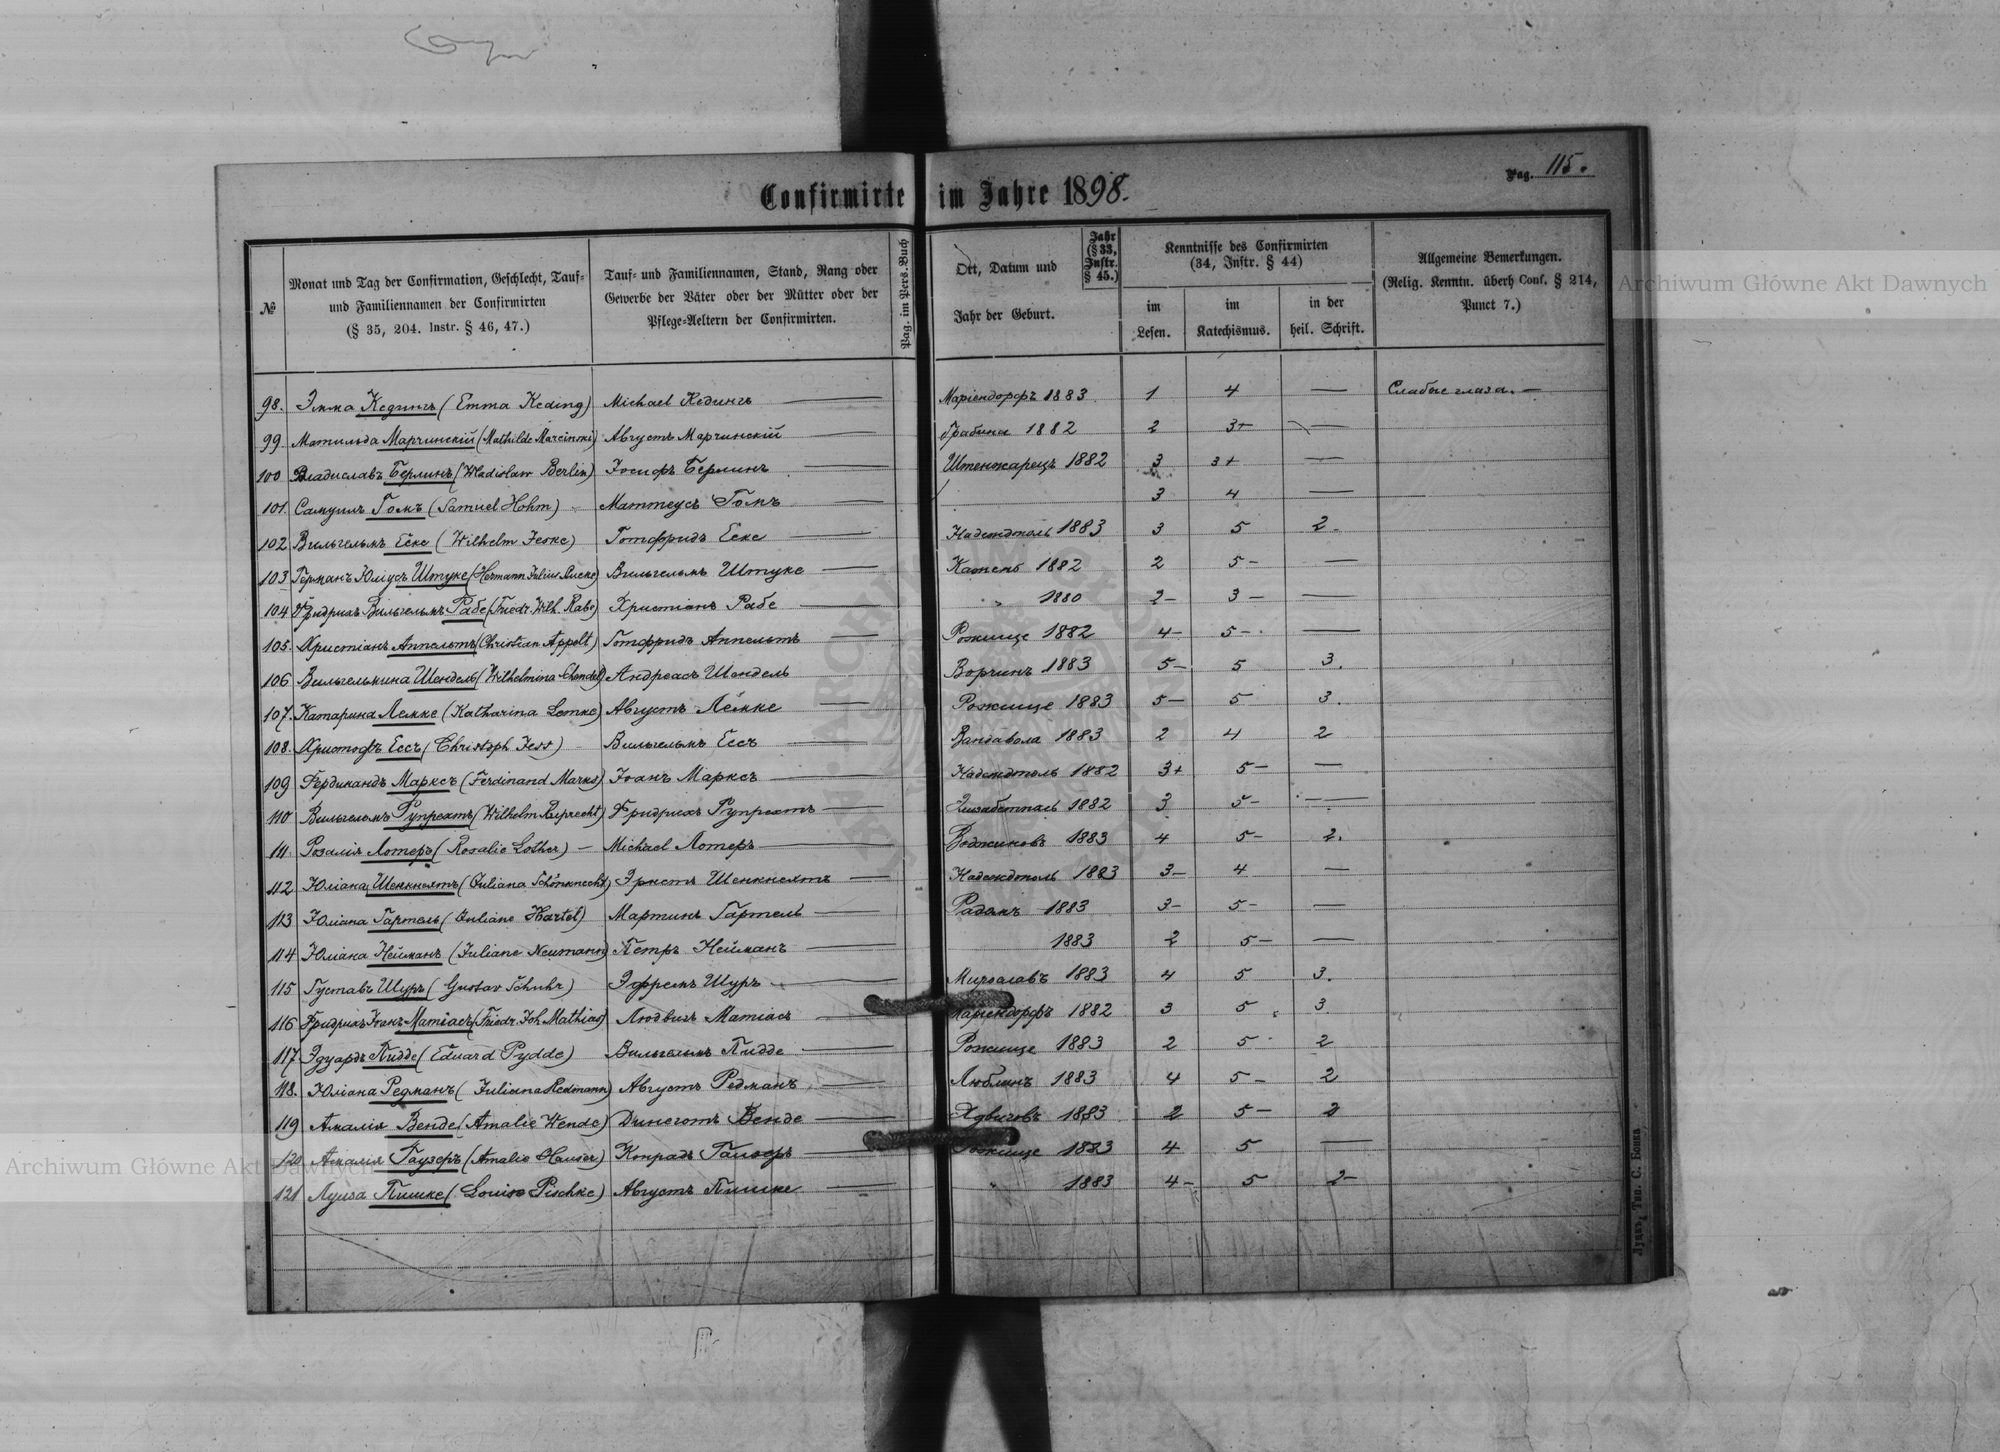 Pag. 115.
Confirmirte im Jahre 1898.
№
Monat und Tag der Confirmation, Geschlecht, Tauf- und Familiennamen der Confirmirten (§ 35, 204. Instr. § 46, 47.)
Tauf- und Familiennamen, Stand, Rang oder Gewerbe der Väter oder der Mütter oder der Pflege-Aeltern der Confirmirten.
Pag. im Pers.-Buch
Ort, Datum und Jahr der Geburt.
Jahr (§ 33, Instr. § 45.)
Kenntnisse des Confirmirten (34, Instr. § 44)
im Lesen.
im Katechismus.
in der heil. Schrift.
Allgemeine Bemerkungen. (Relig. Kenntn. überh Conf. § 214, Punct 7.)
98. Эмма Кедингъ (Emma Keding) Michael Кедингъ — Маріендорфъ 1883 1 4 — Слабые глаза. —
99. Матильда Марчинскій (Mathilde Marcinski) Августъ Марчинскій — Грабина 1882 2 3+ —
100 Владиславъ Берлинъ (Wladislaw Berlin) Іосифъ Берлинъ — Штенжарецъ 1882 3 3+ —
101. Самуилъ Гомъ (Samuel Hohm) — Маттеусъ Гомъ — 3 4 —
102 Вильгельмъ Еске (Wilhelm Jeske) Готфридъ Еске — Надеждполь 1883 3 5 2
103 Германъ Юліусъ Штуке (Hermann Julius Stucke) Вильгельмъ Штуке — Камень 1882 2 5- —
104 Фридрихъ Вильгельмъ Рабе (Friedr. Wilh. Rabe) Христіанъ Рабе — " 1880 2- 3- —
105. Христіанъ Аппельтъ (Christian Appelt) Готфридъ Аппельтъ — Рожище 1882 4- 5- —
106 Вильгельмина Шендель (Wilhelmina Schendel) Андреасъ Шендель Ворчинъ 1883 5- 5 3.
107. Катарина Лемке (Katharina Lemke) Августъ Лемке — Рожище 1883 5- 5 3.
108. Христофъ Ессъ (Christoph Jess) — Вильгельмъ Ессъ — Вандавола 1883 2 4 2
109 Фердинандъ Марксъ (Ferdinand Marks) Іоанъ Марксъ — Надеждполь 1882 3+ 5- —
110 Вильгельмъ Рупрехтъ (Wilhelm Ruprecht) Фридрихъ Рупрехтъ — 1882 3 5- —
111. Розалія Лотеръ (Rosalie Lother) — Michael Лотеръ — 1883 4 5- 2.
112 Юліана Шенкнехтъ (Juliana Schönknecht) Эрнстъ Шенкнехтъ — Надеждполь 1883 3- 4 —
113 Юліана Гартель (Juliane Hartel) Мартинъ Гартель — 1883 3- 5- —
114 Юліана Нейманъ (Juliane Neumann) Петръ Нейманъ — 1883 2 5- —
115 Густавъ Шуръ (Gustav Schuhr) Эфремъ Шуръ — Мирославъ 1883 4 5 3.
116 Фридрихъ Іоанъ Матіасъ (Friedr. Joh. Mathias) Людвигъ Матіасъ — Маріендорфъ 1882 3 5 3
117 Эдуардъ Пидде (Eduard Pydde) Вильгельмъ Пидде — Рожище 1883 2 5 2
118. Юліана Редманъ (Juliana Redmann) Августъ Редманъ — Люблинъ 1883 4 5- 2
119 Амалія Венде (Amalie Wende) Динеготъ Венде — Ядвиговъ 1883 2 5- 2
120 Амалія Гаузеръ (Amalie Hauser) Конрадъ Гаузеръ — Рожище 1883 4 5 —
121 Луиза Пишке (Louise Pischke) Августъ Пишке — " 1883 4- 5 2-
Луцкъ, Тип. С. Бонка
Archiwum Główne Akt Dawnych
Archiwum Główne Akt Dawnych